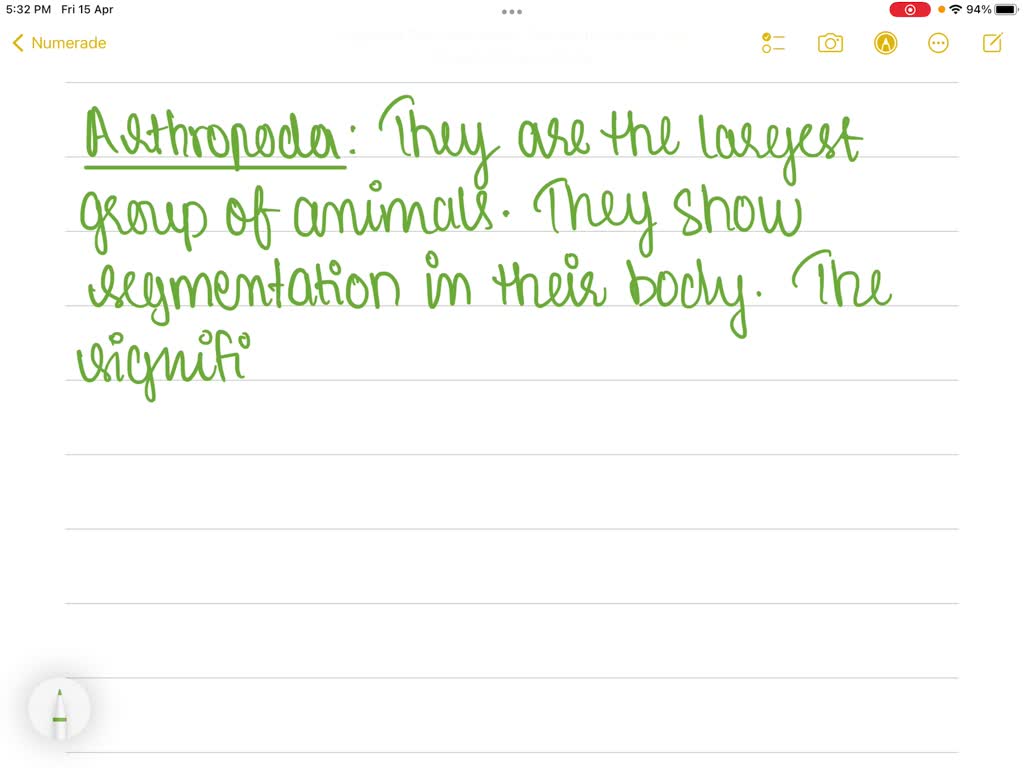 5:32 PM Fri 15 Apr
94%
Numerade
Arthropoda: They are the largest
group of animals. They show
segmentation in their body. The
signifi